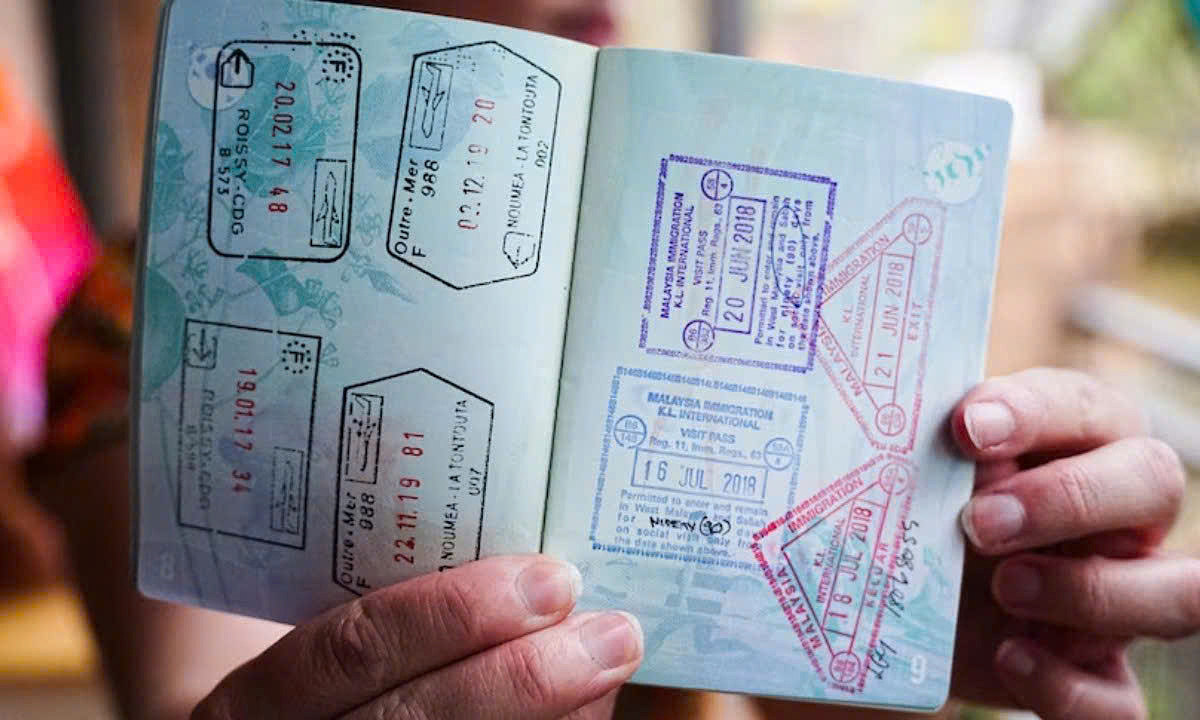 F
20.02.17 48
ROISSY-CDG
B 573
Outre-Mer
F 988
02.12.19 20
NOUMEA-LA TONTOUTA
002
F
19.01.17 34
ROISSY-CDG
Outre-Mer
F 988
22.11.19 81
NOUMEA-LA TONTOUTA
007
8
MALAYSIA IMMIGRATION
K.L. INTERNATIONAL
VISIT PASS
Reg. 11, Imm. Regs., 63
20 JUN 2018
Permitted to enter and remain
in West Malaysia and Sabah
for ninety (90) days
on social visit only from
the date shown above.
IMMIGRATION
K.L.
INTERNATIONAL
21 JUN 2018
EXIT
MALAYSIA
MALAYSIA IMMIGRATION
K.L. INTERNATIONAL
VISIT PASS
Reg. 11, Imm. Regs., 63
16 JUL 2018
Permitted to enter and remain
in West Malaysia Sabah
for NINETY (90)
on social visit only from
the date shown above.
IMMIGRATION
K.L.
INTERNATIONAL
18 JUL 2018
KELUAR
MALAYSIA
9